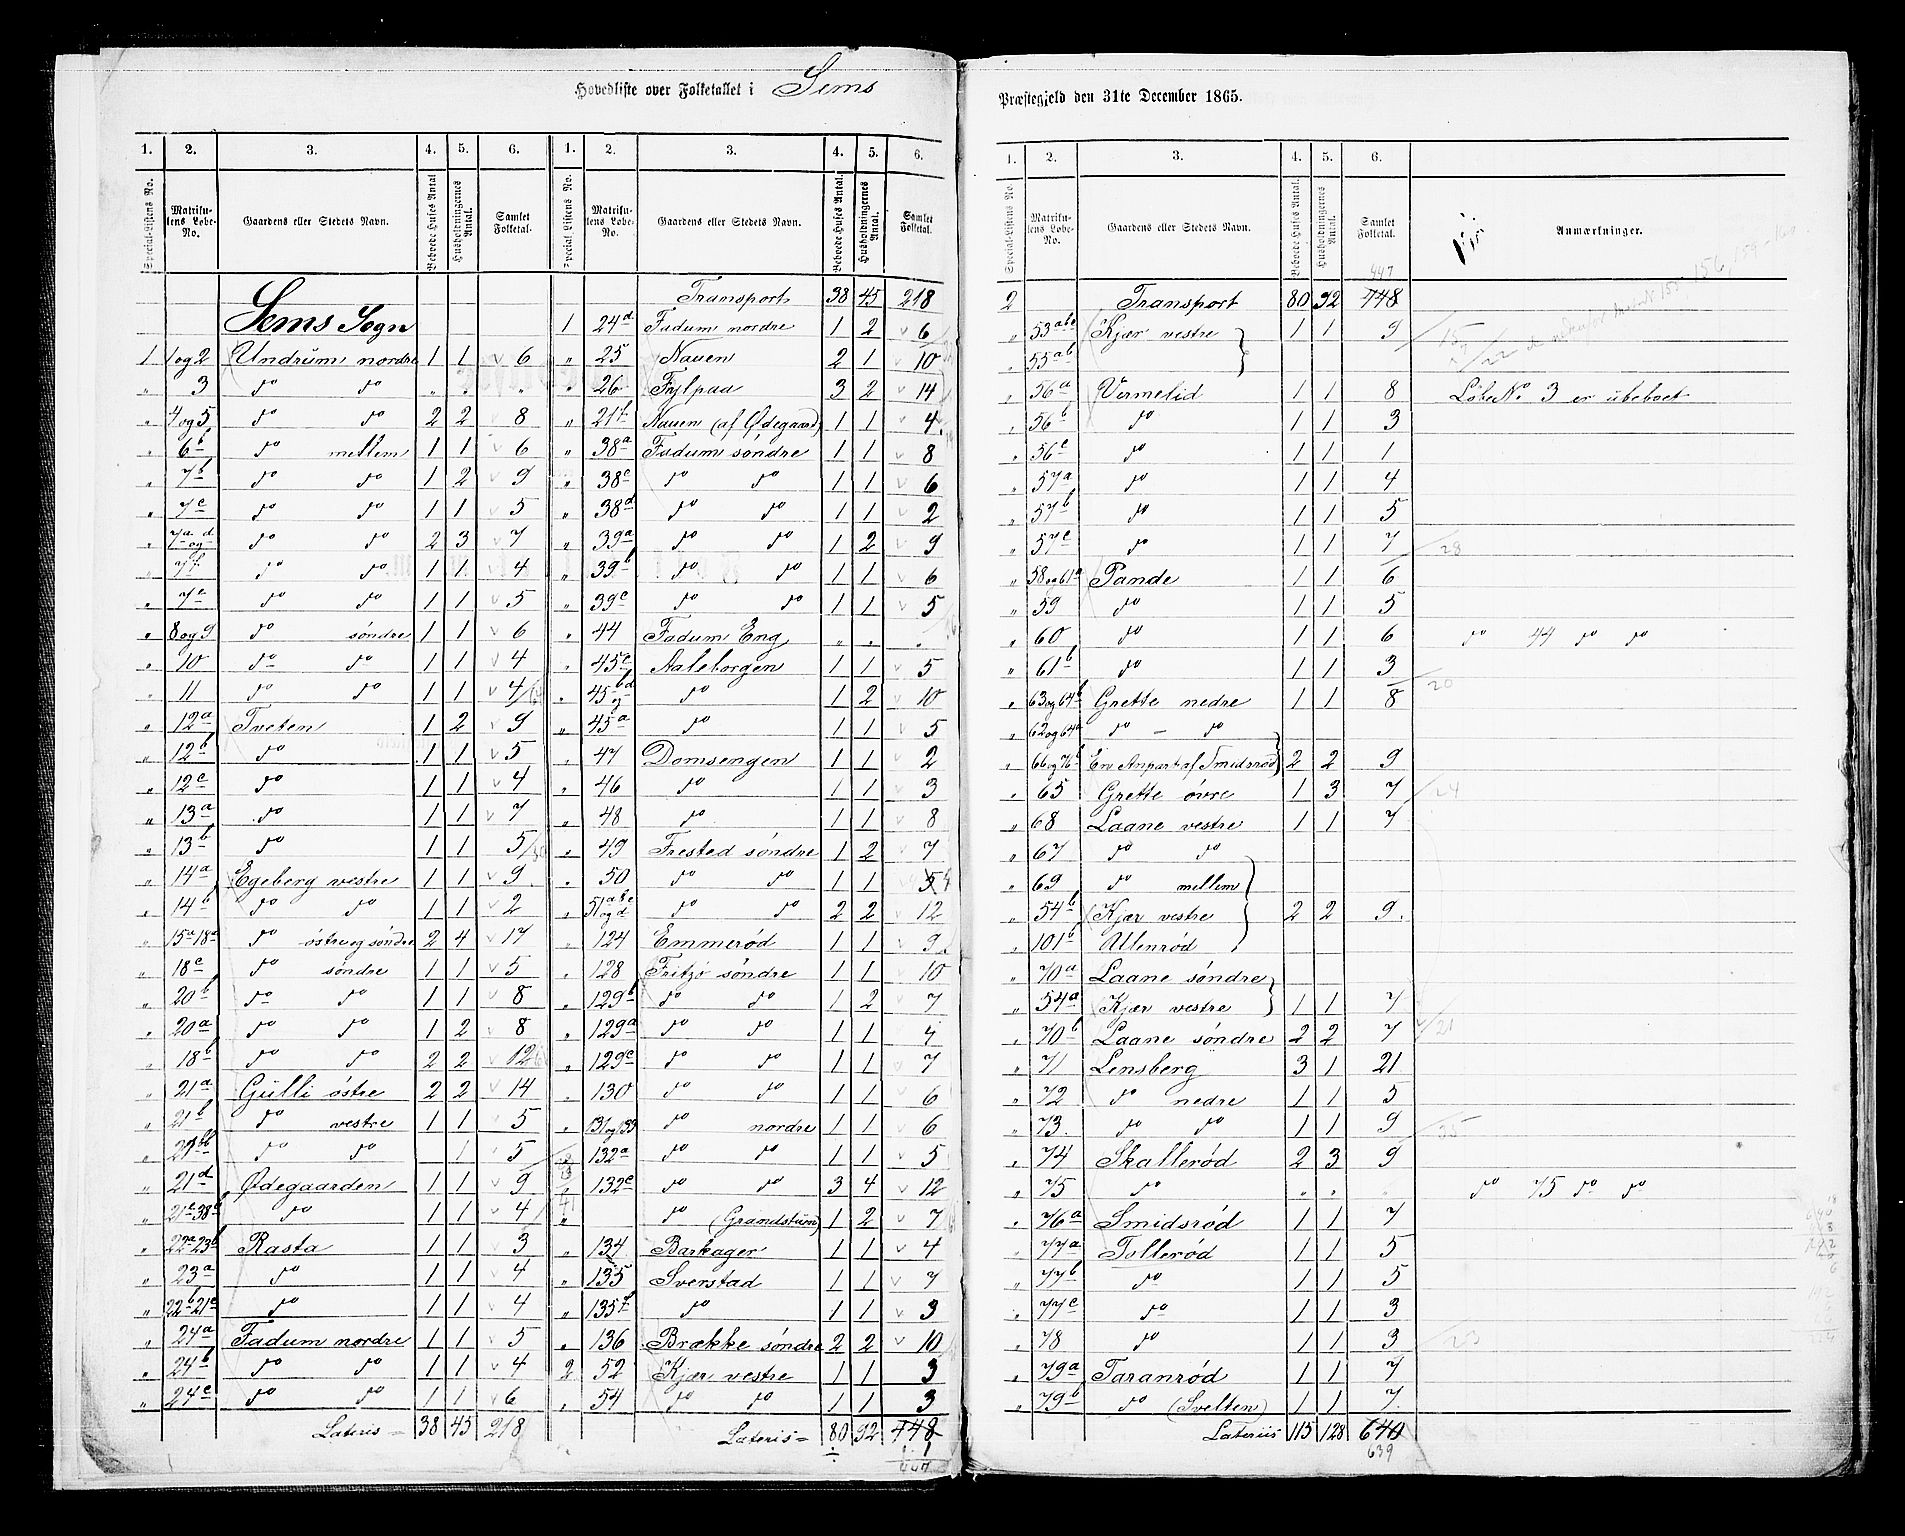 Hovedliste over Folketallet i Sems
Præstegjeld den 31te December 1865.
1. 2. 3. 4. 5. 6. 1. 2. 3. 4. 5. 6.
Special-Listens No. Matrikulens Løbe-No. Gaardens eller Stedets Navn. Beboede Huses Antal Husholdningernes Antal. Samlet Folketal. Special-Listens No. Matrikulens Løbe-No. Gaardens eller Stedets Navn. Beboede Huses Antal. Husholdningernes Antal. Samlet Folketal.
Sems Sogn
1 1og2 Undrum nordre 1 1 6
" 3 do do " " "
" 4og5 do do 2 2 8
" 6b do mellem 1 1 6
" 7b do do 1 2 9
" 7c do do 1 1 5
" 7a og d do do 2 3 7
" 7f do do 1 1 4
" 7e do do 1 1 5
" 8og9 do søndre 1 1 6
" 10 do do 1 1 4
" 11 do do 1 1 4
" 12a Tveten 1 2 9
" 12b do 1 1 5
" 12c do 1 1 4
" 13a do 1 1 7
" 13b do 1 1 5
" 14a Egeberg vestre 1 1 9
" 14b do do 1 1 2
" 15a 18a do østre og søndre 2 4 17
" 18c do søndre 1 1 5
" 20b do do 1 1 8
" 20a do do 1 2 8
" 18b do do 2 2 12
" 21a Gulli østre 2 2 14
" 21b do vestre 1 1 5
" 21bb do do 1 5
" 21d Ødegaarden 1 1 9
" 21e 38e do 1 1 4
" 22a 23b Rasta 1 1 3
" 23a do 1 1 4
" 22b 21c do 1 1 4
" 24a Fadum nordre 1 1 5
" 24b do do 1 1 4
" 24c do do 1 1 6
Lateris = 38 45 218
Transport 38 45 218
1 24d Fadum nordre 1 2 6
" 25 Nauen 2 1 10
" 26 Fylpaa 3 2 14
" 21f Nauen (af Ødegaard) 1 1 4
" 38a Fadum søndre 1 1 8
" 38c do do 1 1 6
" 38d do do 1 1 2
" 39a do do 1 2 9
" 39b do do 1 1 6
" 39c do do 1 1 5
" 44 Fadum Eng " " "
" 45c Aaleborgen 1 1 5
" 45b og d do 1 2 10
" 45a do 1 1 5
" 47 Domsengen 1 1 2
" 46 do 1 1 3
" 48 do 1 1 8
" 49 Frested søndre 1 2 7
" 50 do do 1 1 5 4
" 51abc og d do do 2 2 12
" 124 Emmerød 1 1 9
" 128 Fritzø søndre 1 1 10
" 129b do do 1 2 7
" 129a do do 1 1 4
" 129c do do 1 1 7
" 130 do do 1 1 6
" 131og133 do nordre 1 1 6
" 132a do do 1 1 5
" 132c do do 3 4 12
" do (Grandstun) 1 2 7
" 134 Barkager 1 1 4
" 135 Sverstad 1 1 7
" 135f do 1 1 3
" 136 Brække søndre 2 2 10
2 52 Kjær vestre 1 1 3
" 54 do do 1 1 3
Lateris = 80 92 448
÷ 1
447
1. 2. 3. 4. 5. 6.
Special-Listens No. Matrikulens Løbe-No. Gaardens eller Stedets Navn. Beboede Huses Antal. Husholdningernes Antal. Samlet Folketal. Anmærkninger.
447
2 Transport 80 92 448
" 53abc Kjær vestre 1 1 9
" 55ab
" 56a Vermelid 1 1 8 Løbe No 3 er ubeboet
" 56b do 1 1 3
" 56c do 1 1 1
" 57a do 1 1 4
" 57b do 1 1 5
" 57c do 1 1 7 28
" 58og61a Pande 1 1 6
" 59 do 1 1 5
" 60 do 1 1 6 do 44 do do
" 61b do 1 1 3 20
" 63og64b Grette nedre 1 1 8
" 62og64a do - do
" 66og76b En Anpart af Smidsrød 2 2 9
" 65 Grette øvre 1 3 7 24
" 68 Laane vestre 1 1 7
" 67 do do
" 69 do mellem
" 54b Kjær vestre 2 2 9.
" 101b Ullenrød
" 70a Laane søndre
" 54a Kjær vestre 1 1 7
" 70b Laane søndre 2 2 7 21
" 71 Lensberg 3 1 21
" 72 do nedre 1 1 5
" 73. do do 1 1 9 35
" 74 Skallerød 2 3 9
" 75 do " " " do 75 do do
" 76a Smidsrød 1 1 7
" 77a Tollerød 1 1 5
" 77b do 1 1 5
" 77c do 1 1 3
" 78 do 1 1 3 23
" 79a Taranrød 1 1 7
" 79b do (Svelten) 1 1 7.
Lateriis 115 128 640
639